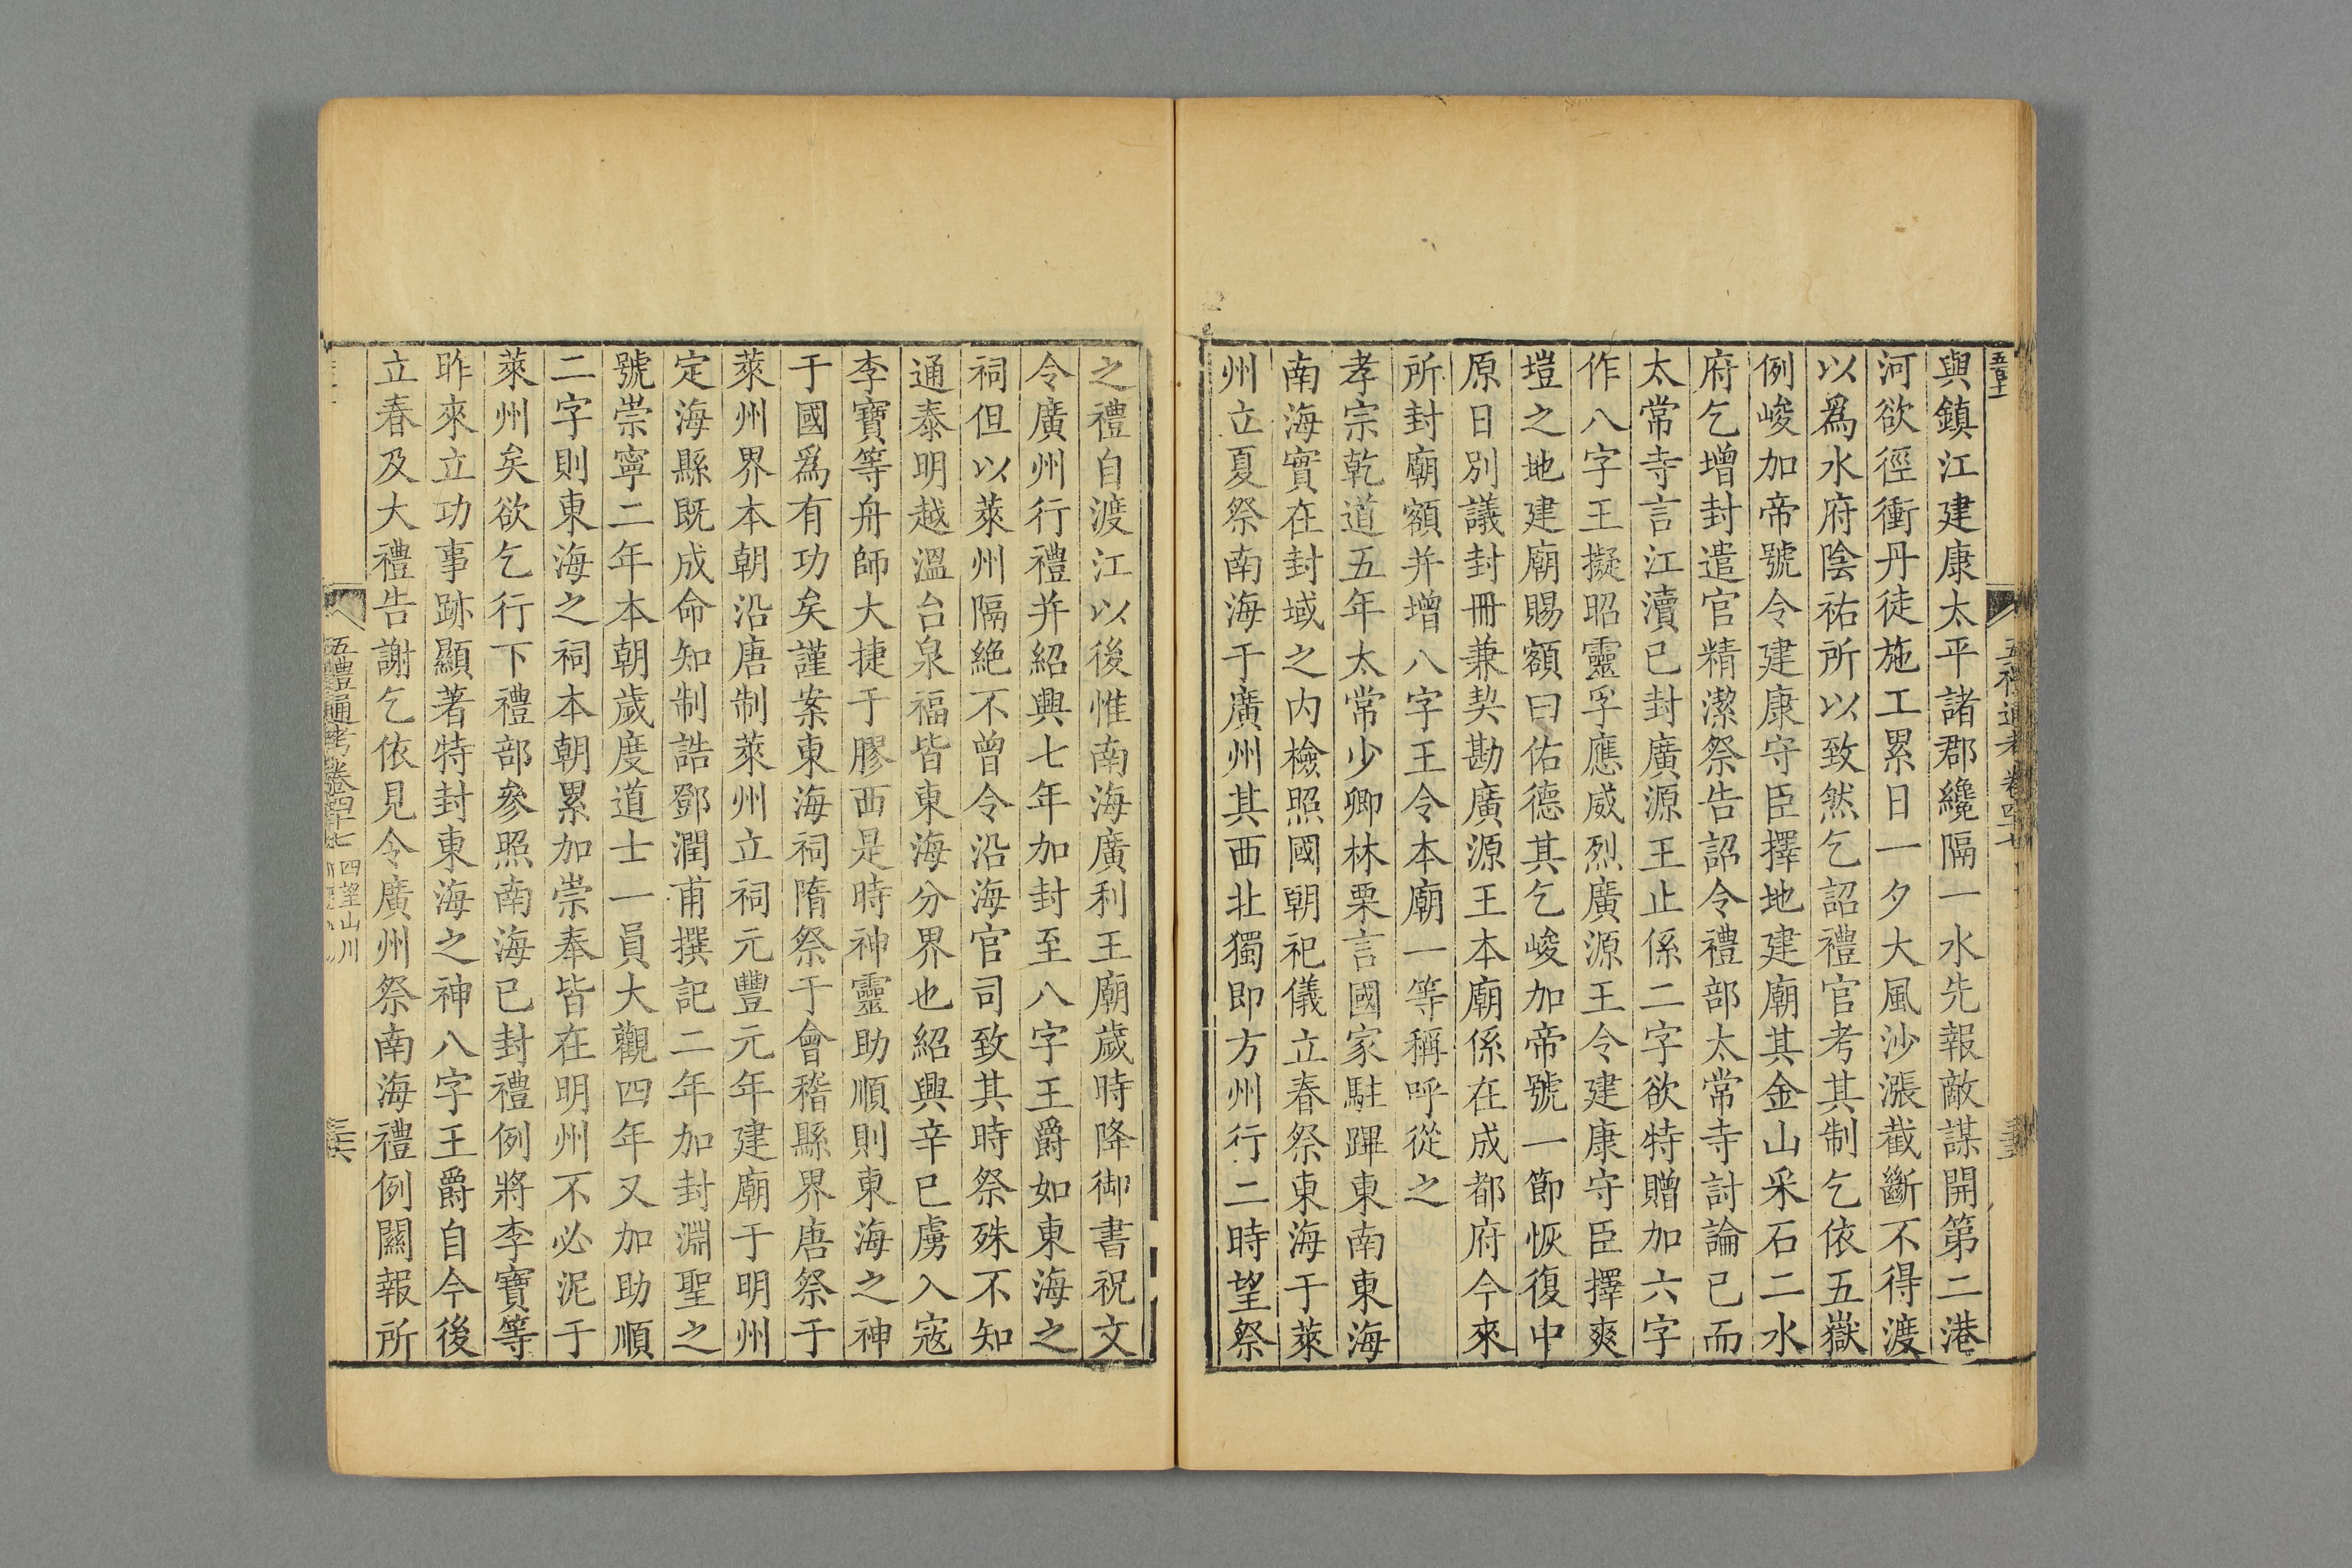 五禮通考卷四十七
與鎮江建康太平諸郡纔隔一水先報敵謀開第二港
河欲徑衝丹徒施工累日一夕大風沙漲截斷不得渡
以爲水府陰祐所以致然乞詔禮官考其制乞依五嶽
例峻加帝號令建康守臣擇地建廟其金山采石二水
府乞增封遣官精潔祭告詔令禮部太常寺討論已而
太常寺言江瀆已封廣源王止係二字欲特贈加六字
作八字王擬昭靈孚應威烈廣源王令建康守臣擇爽
塏之地建廟賜額曰佑德其乞峻加帝號一節恢復中
原日別議封冊兼契勘廣源王本廟係在成都府今來
所封廟額并增八字王令本廟一等稱呼從之
孝宗乾道五年太常少卿林栗言國家駐蹕東南東海
南海實在封域之內檢照國朝祀儀立春祭東海于萊
州立夏祭南海于廣州其西北獨即方州行二時望祭
之禮自渡江以後惟南海廣利王廟歲時降御書祝文
令廣州行禮并紹興七年加封至八字王爵如東海之
祠但以萊州隔絶不曾令沿海官司致其時祭殊不知
通泰明越溫台泉福皆東海分界也紹興辛已虜入寇
李寶等舟師大捷于膠西是時神靈助順則東海之神
于國爲有功矣謹案東海祠隋祭于會稽縣界唐祭于
萊州界本朝沿唐制萊州立祠元豐元年建廟于明州
定海縣既成命知制誥鄧潤甫撰記二年加封淵聖之
號崇寧二年本朝歲度道士一員大觀四年又加助順
二字則東海之祠本朝累加崇奉皆在明州不必泥于
萊州矣欲乞行下禮部參照南海已封禮例將李寶等
昨來立功事跡顯著特封東海之神八字王爵自今後
立春及大禮告謝乞依見令廣州祭南海禮例關報所
五禮通考卷四十七 四望山川